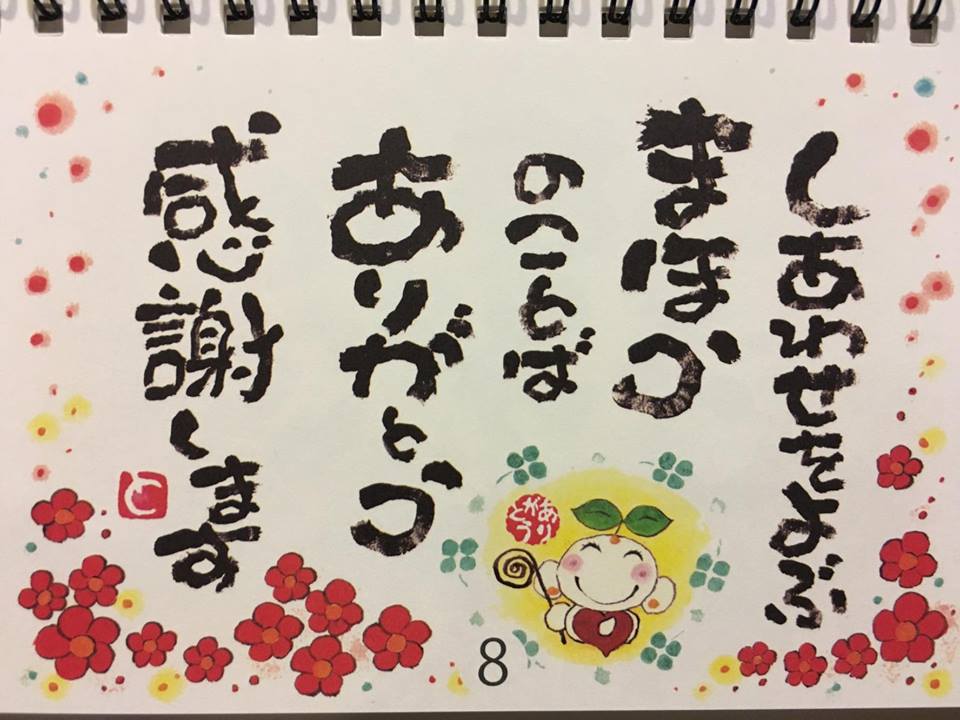 しあわせをよぶ
まほう
のことば
ありがとう
感謝します
あり
がとう
8